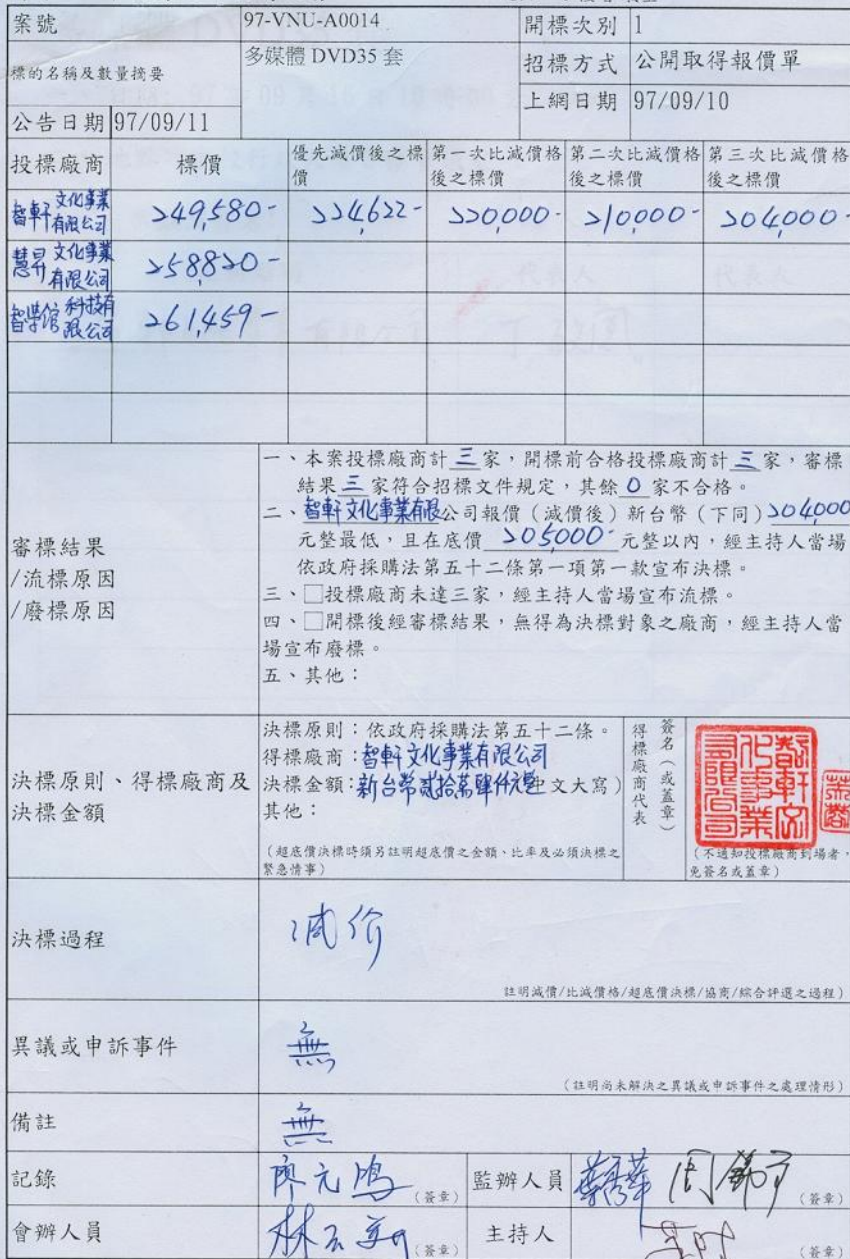 案號 97-VNU-A0014 開標次別 1
標的名稱及數量摘要 多媒體 DVD35 套 招標方式 公開取得報價單
上網日期 97/09/10
公告日期 97/09/11
投標廠商 標價 優先減價後之標價 第一次比減價格後之標價 第二次比減價格後之標價 第三次比減價格後之標價
智軒文化事業有限公司 249,580- 224,622- 220,000- 210,000- 204,000-
慧昇文化事業有限公司 258,820-
智學館科技有限公司 261,459-
審標結果
/流標原因
/廢標原因
一、本案投標廠商計三家,開標前合格投標廠商計三家,審標
結果三家符合招標文件規定,其餘0家不合格。
二、智軒文化事業有限公司報價(減價後)新台幣(下同)204,000
元整最低,且在底價205,000-元整以內,經主持人當場
依政府採購法第五十二條第一項第一款宣布決標。
三、□投標廠商未達三家,經主持人當場宣布流標。
四、□開標後經審標結果,無得為決標對象之廠商,經主持人當
場宣布廢標。
五、其他:
決標原則、得標廠商及
決標金額
決標原則:依政府採購法第五十二條。
得標廠商:智軒文化事業有限公司
決標金額:新台幣貳拾萬肆仟元整中文大寫)
其他:
(超底價決標時須另註明超底價之金額、比率及必須決標之
緊急情事)
得標廠商代表
簽名(或蓋章)
智軒文化事業有限公司
(不通知投標廠商到場者,
免簽名或蓋章)
決標過程 減价
註明減價/比減價格/超底價決標/協商/綜合評選之過程)
異議或申訴事件 無
(註明尚未解決之異議或申訴事件之處理情形)
備註 無
記錄 廖元鴻 (簽章) 監辦人員 (簽章)
會辦人員 (簽章) 主持人 (簽章)